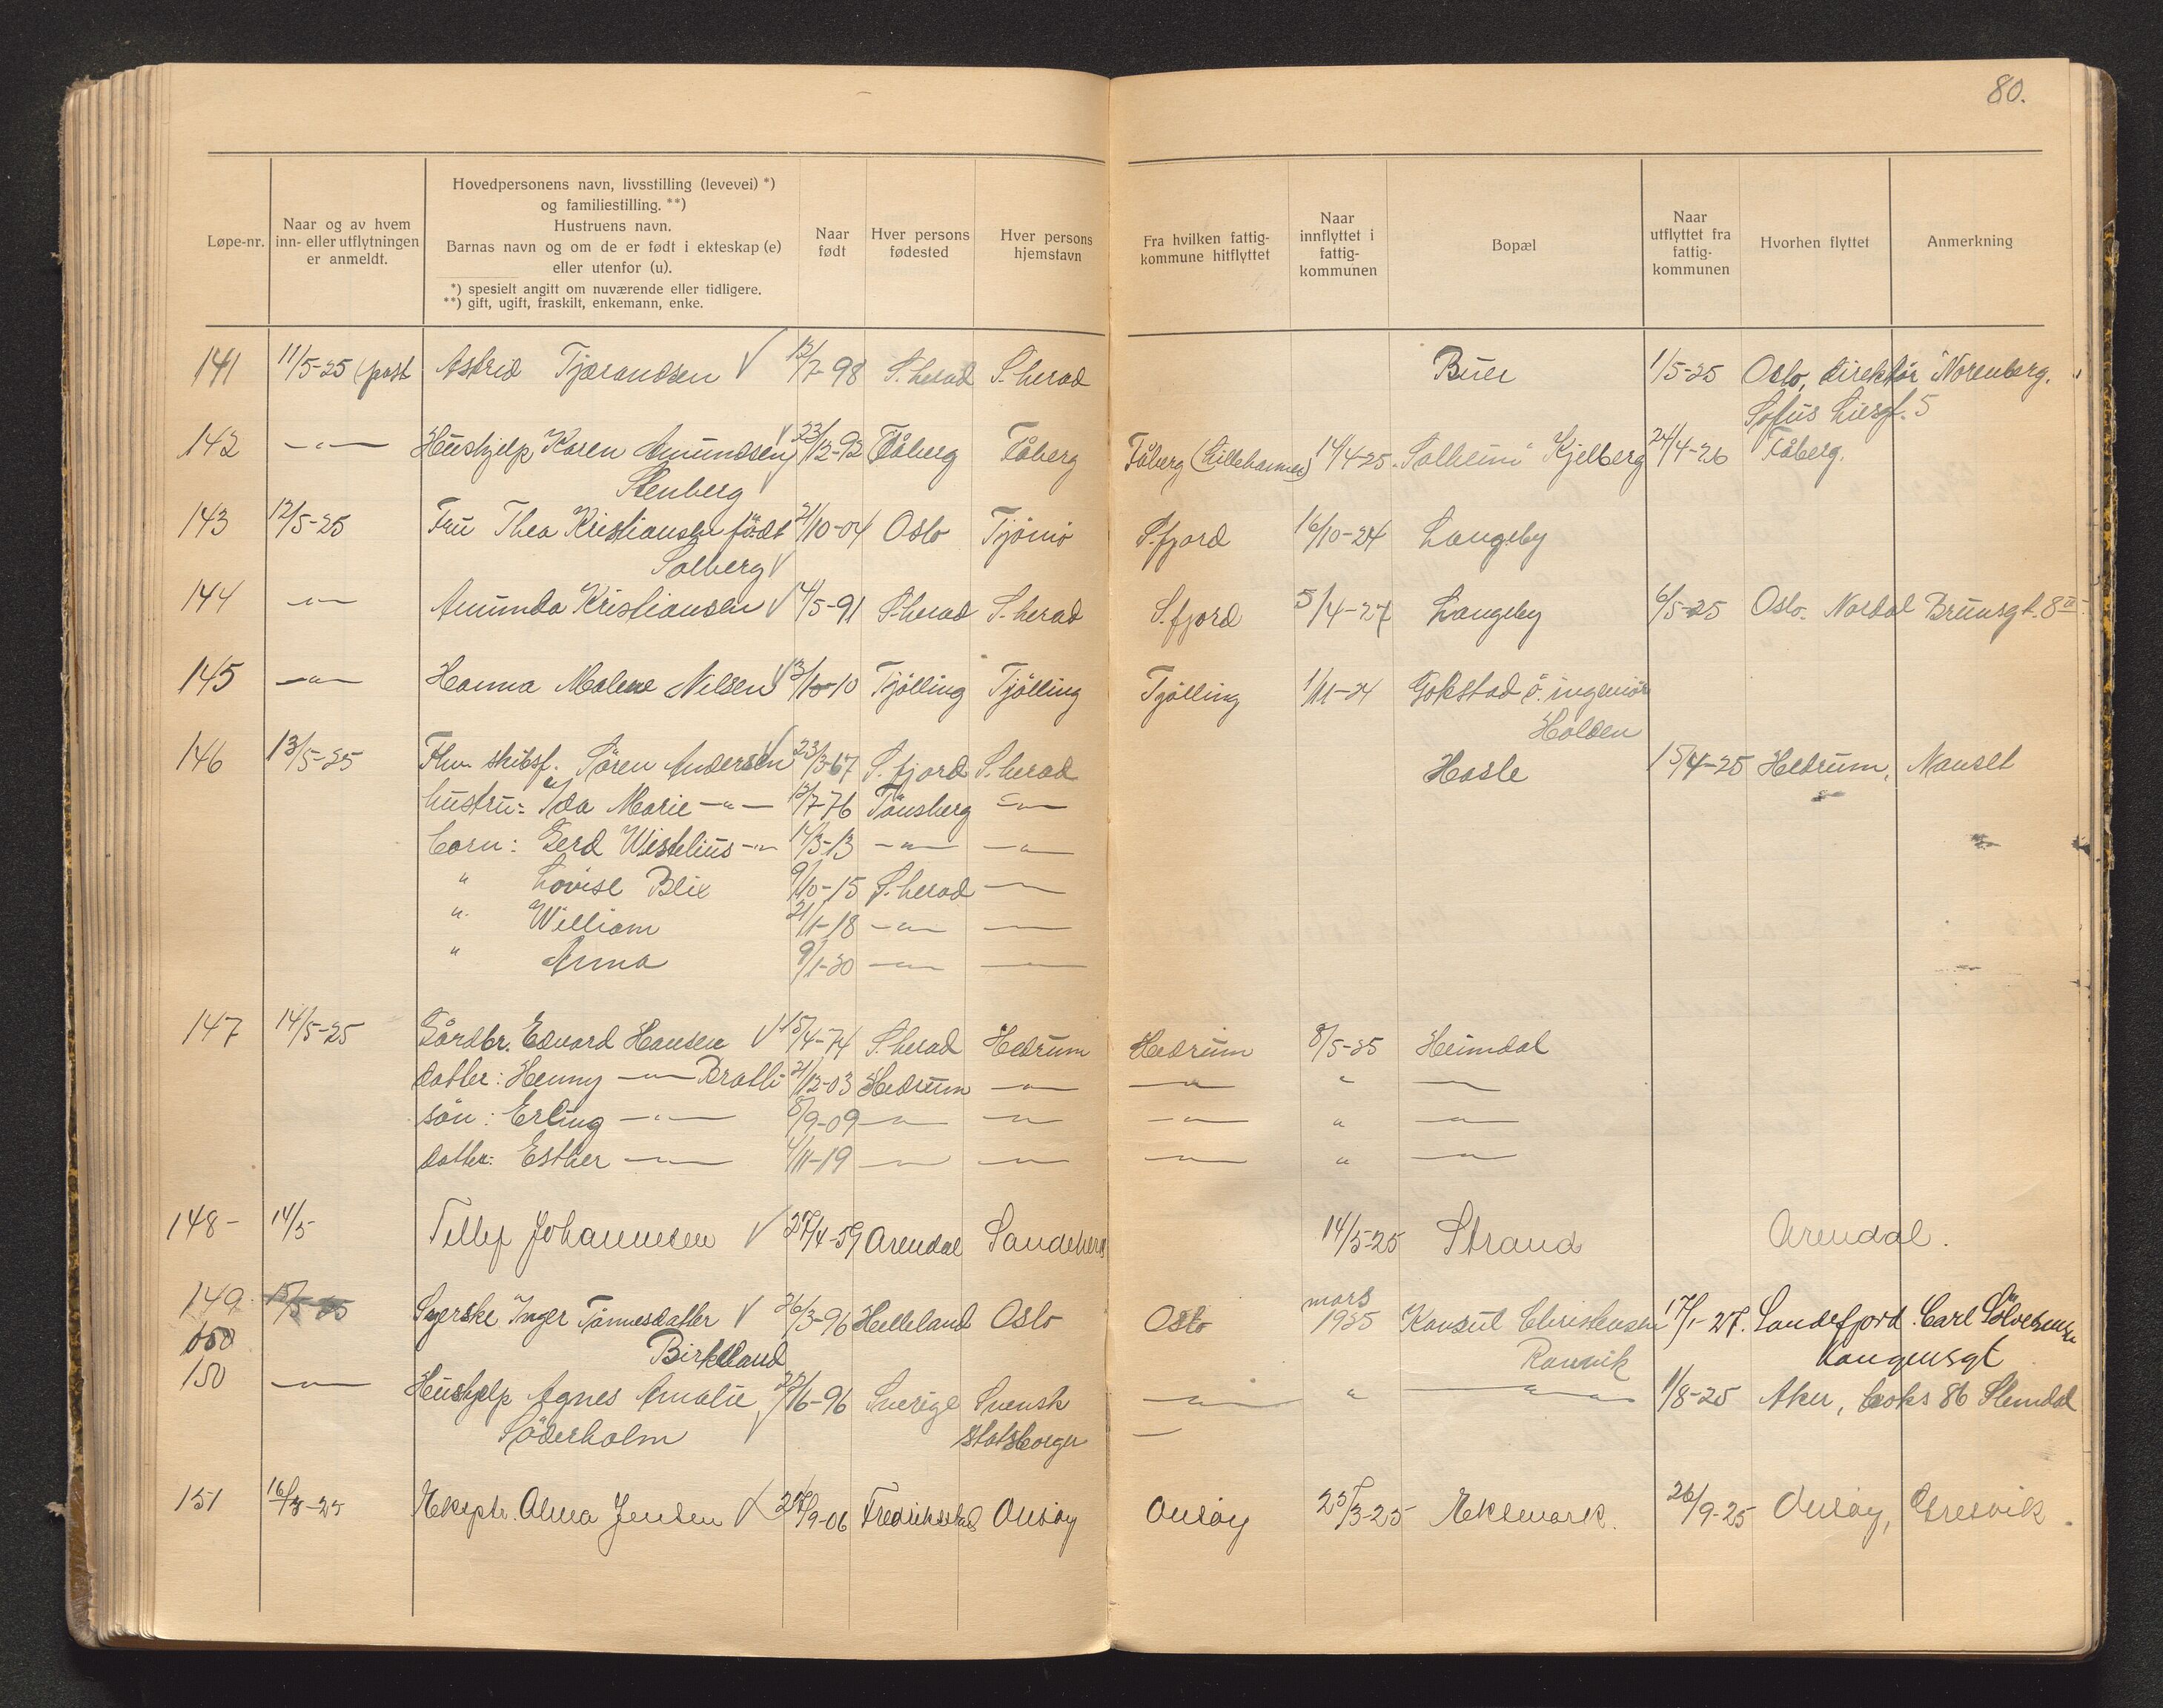 80.
Løpe-nr.
Naar og av hvem
inn- eller utflytningen
er anmeldt.
Hovedpersonens navn, livsstilling (levevei) *)
og familiestilling. **)
Hustruens navn.
Barnas navn og om de er født i ekteskap (e)
eller utenfor (u).
*) spesielt angitt om nuværende eller tidligere.
**) gift, ugift, fraskilt, enkemann, enke.
Naar
født
Hver persons
fødested
Hver persons
hjemstavn
Fra hvilken fattig-
kommune hitflyttet
Naar
innflyttet i
fattig-
kommunen
Bopæl
Naar
utflyttet fra
fattig-
kommunen
Hvorhen flyttet
Anmerkning
141 11/5-25 (post Astrid Tjærandsen √ 12/7-98 S.herad S.herad Buer 1/5-25 Oslo, direktør Norenberg.
Sofus Liesgt. 5
142 —"— Hushjelp Karen Amundsen √ 23/12-92 Fåberg Fåberg Fåberg (Lillehammer) 14/4-25 "Solheim" Kjelberg 24/4-26 Fåberg.
Stenberg √
143 12/5-25 Fru Thea Kristiansen født 21/10-04 Oslo Tjömö S.fjord 16/10-24 Langeby
Solberg √
144 —"— Amunda Kristiansen √ 4/5-91 S.herad S.herad S.fjord 5/4-27 Langeby 6/5-25 Oslo. Nordal Brunsgt. 8 II
145 —"— Hanna Malene Nilsen √ 3/10-10 Tjölling Tjölling Tjölling 1/11-24 Gokstad ö. ingeniör
Holden
146 13/5-25 Fhv. skibsf. Sören Andersen √ 23/3-67 S.fjord S.herad Hasle 15/4-25 Hedrum, Nanset
hustru: Ida Marie —"— 12/7-76 Tönsberg —"—
barn: Gerd Wistelius —"— 14/3-13 —"— —"—
" Lovise Blix 9/10-15 S.herad —"—
" William 21/1-18 —"— —"—
" Anna 9/1-20 —"— —"—
147 14/5-25 Gårdbr. Edvard Hansen √ 15/4-74 S.herad Hedrum Hedrum 8/5-25 Heimdal
datter: Henny —"— Bratli 21/12-03 Hedrum —"— —"— " —"—
sön: Erling —"— 8/9-09 —"— —"— —"— " —"—
datter: Esther —"— 4/11-19 —"— —"— —"— " —"—
148- 14/5- Tellef Johannesen √ 27/4-59 Arendal Sandeherd 14/5-25 Strand Arendal.
149 15/5-25 Syerske Inger Tönnesdatter √ 26/3-96 Helleland Oslo Oslo mars
1925 Konsul Christensen 17/1-27. Sandefjord. Carl Sölvesmn
150 Birkeland Ranvik Langensgt
150 —"— Hushjelp Agnes Amalie 22/6-96 Sverige Svensk —"— " —"— 1/8-25 Aker, boks 86 Slemdal
Söderholm √ statsborger —
151 16/3-25 Eksptr. Alma Jensen √ 27/9-06 Fredrikstad Onsöy Onsöy 25/3-25 Ekevark. 26/9-25 Onsöy, Gresvik.